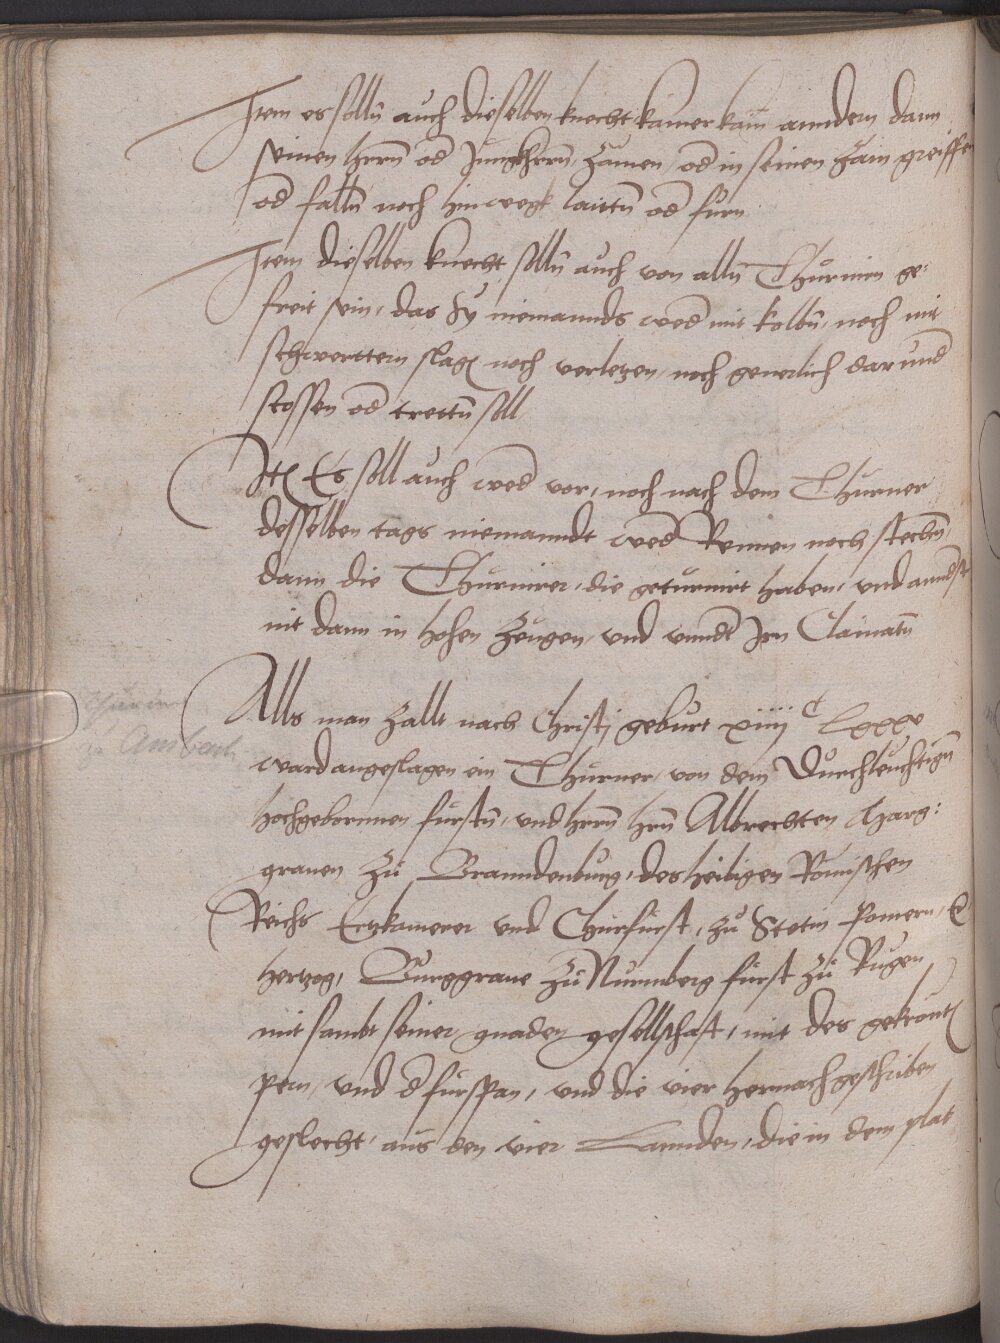 Item es sollñ auch dieselben knecht kainer kain anndern dann
seinen herrñ od Junghern̄ zämen, od in seinen Zäm greiffen
od falln̄ noch hinwegk laittn̄ od fürn
Item dieselben knecht sollñ auch von alln̄ Thurnirn ge:
freit sein, das Sy niemannds wed mit kolbn̄, noch mit
schwerttern slag noch verletzen, noch geuerlich darund
stossen od trettn̄ soll
Itē Es soll auch wed vor, noch nach dem Thurner
desselben tags niemanndt wed Rennen noch stechn̄,
dann die Thurnirer, die geturnirt haben, und annderst
nit dann in hohen Zeugen, und unndt Jrn Clainatn̄
Thurner
zu Ansbach
Alls man Zallt nach Christj geburt xiiii c Lxxxv
ward angeslagen ein Thurner, von dem Durchleuchtign̄
hochgebornnen fürstn̄, und herrn̄ hrn̄ Albrechten Marg:
grauen zu Branndenburg, des heiligen Römischen
Reichs Ertzkamerer und Churfürst, zu Stetin Pomern, &c
hertzog, Burggraue zu Nurmberg fürst zu Rugen
mit sambt seiner gnaden gesellschaft, mit des gekrönt
pern, und d fürspan, und die vier hernach geschriben
geslecht, aus den vier Lannden, die in dem plat